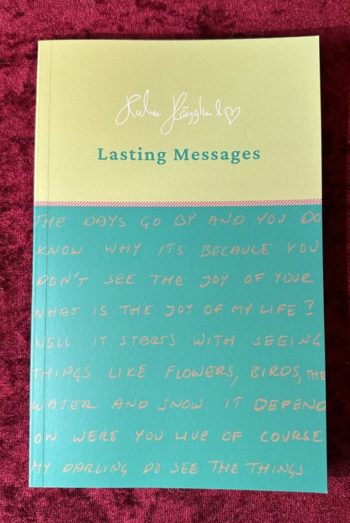 Lasting Messages
THE DAYS GO BY AND YOU DO
KNOW WHY ITS BECAUSE YOU
DON'T SEE THE JOY OF YOUR
WHAT IS THE JOY OF MY LIFE?
WELL IT STARTS WITH SEEING
THINGS LIKE FLOWERS, BIRDS, THE
WATER AND SNOW. IT DEPEND
ON WERE YOU LIVE OF COURSE
MY DARLING DO SEE THE THINGS